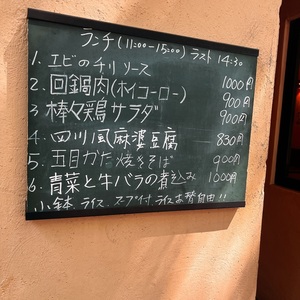 ランチ(11:00-15:00) ラスト 14:30
1. エビのチリソース 1000円
2. 回鍋肉(ホイコーロー) 900円
3 棒々鶏サラダ 900円
4. 四川風麻婆豆腐 — 830円
5. 五目かた焼きそば 900円
6. 青菜と牛バラの煮込み 1000円
小鉢 ライス スープ付 ライスお替自由!!